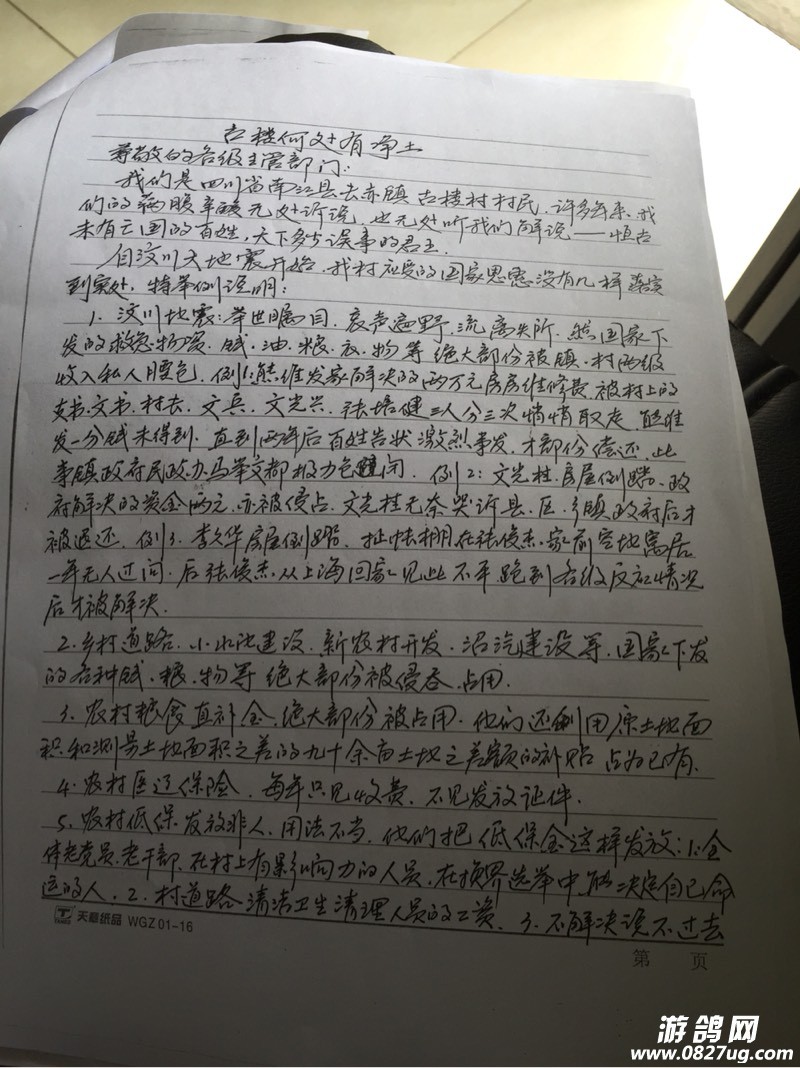 古楼何处有净土
尊敬的各级主管部门:
我们是四川省南江县去赤镇古楼村村民,许多年来,我
们的满腹辛酸无处诉说,也无处听我们解说——恒古
未有亡国的百姓,天下多少误事的君王.
自汶川大地震开始,我村应受的国家恩惠没有几样落实
到实处,特举例说明:
1.汶川地震:举世瞩目,哀声遍野,流离失所,然国家下
发的救急物资,钱.油.粮.衣.物等绝大部份被镇.村两级
收入私人腰包,例1:熊维发家解决的两万元房屋维修费被村上的
支书.文书.村长,文兵.文光兴.张培健三人分三次悄悄取走,熊维
发一分钱未得到.直到两年后百姓告状激烈事发,才部份偿还,此
事镇政府民政办马举文都极力包 闭.例2:文光桂,房屋倒踏.政
府解决的资金两元,亦被侵占,文光桂无奈哭诉县.区.乡镇政府后才
被退还,例3.李久华房屋倒踏,扯帐棚在张俊杰家前空地寓居
一年无人过问.后张俊杰从上海回家见此不平跑到各级反应情况
后才被解决.
2.乡村道路.小水池建设.新农村开发.沼汽建设等,国家下发
的各种钱.粮.物等绝大部份被侵吞.占用.
3.农村粮食直补金,绝大部份被占用.他们还利用原土地面
积和测量土地面积之差的九十余亩土地之差额的补贴占为已有.
4.农村医辽保险,每年只见收费,不见发放证件.
5.农村低保发放非人,用法不当,他们把低保金这样发放:1:全
体老党员.老干部.在村上有影响力的人员,在换界选举中,能决定自已命
运的人.2.村道路清洁卫生清理人员的工资.3.不解决说不过去
天章纸品 WGZ 01-16
第 页
游鸽网
www.0827ug.com